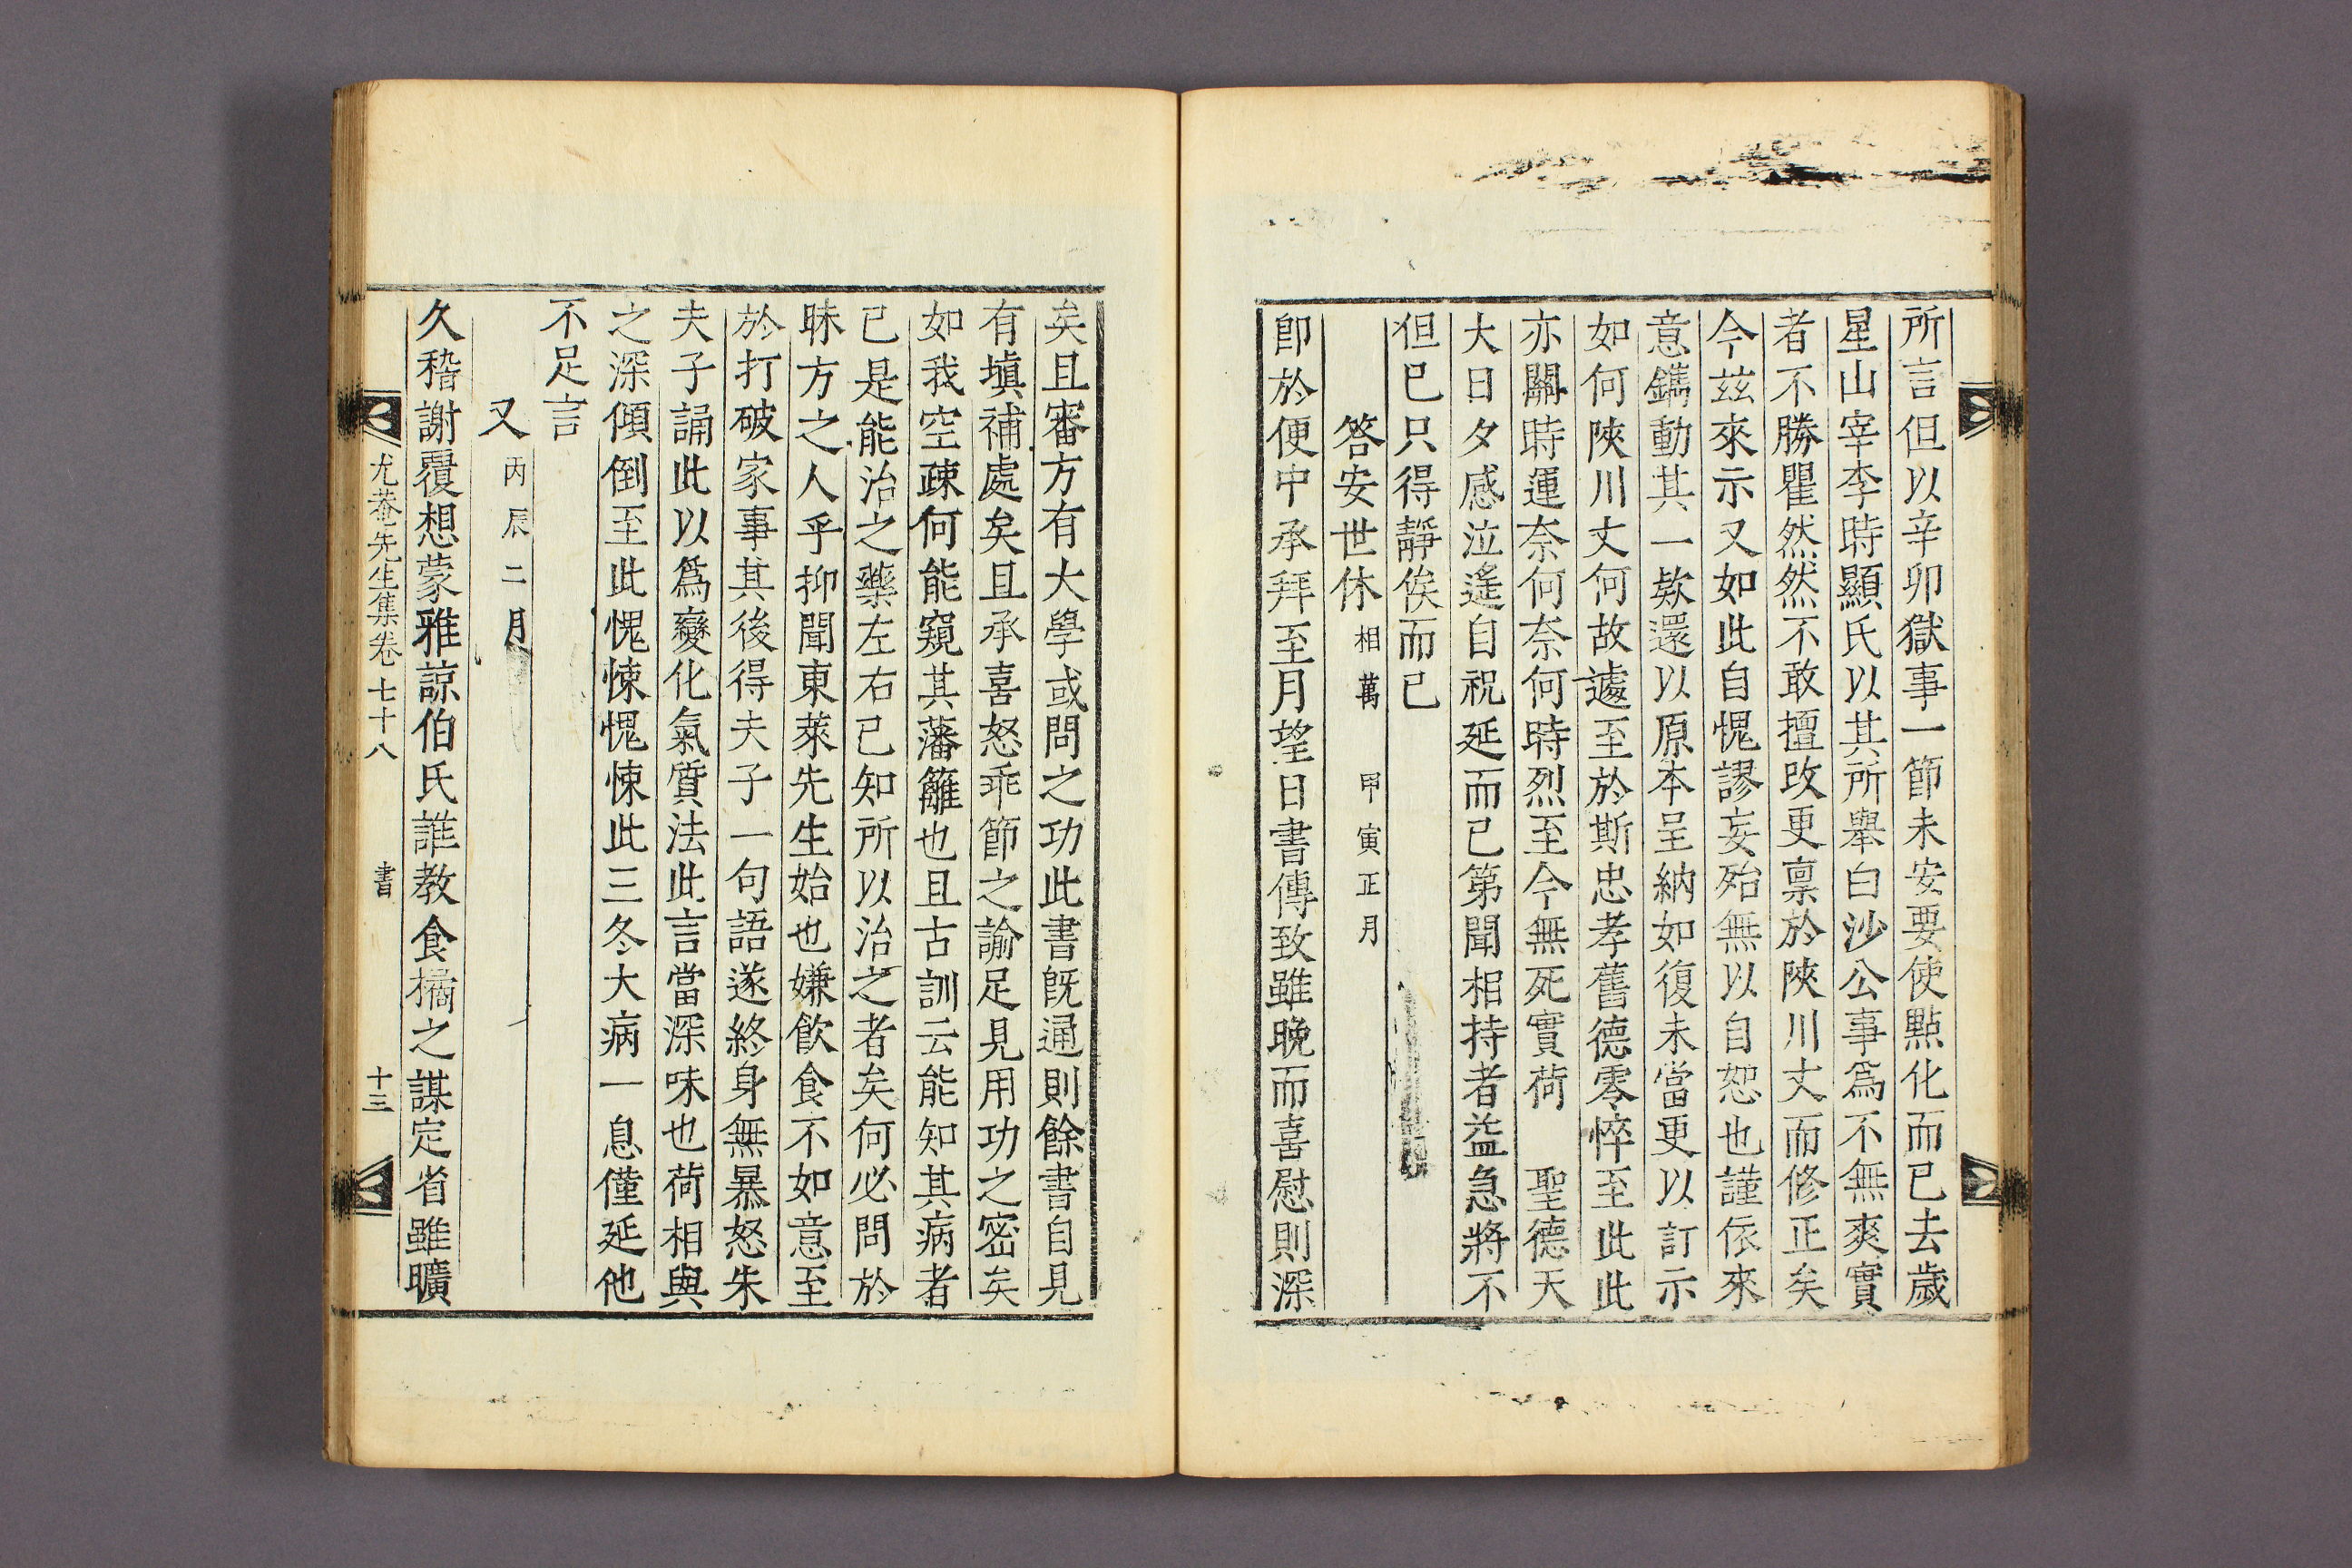 所言但以辛卯獄事一節未安要使點化而已去歲
星山宰李時顯氏以其所舉白沙公事爲不無爽實
者不勝瞿然然不敢擅改更稟於陜川丈而修正矣
今玆來示又如此自愧謬妄殆無以自恕也謹依來
意鐫動其一欵還以原本呈納如復未當更以訂示
如何陜川丈何故遽至於斯忠孝舊德零悴至此此
亦關時運奈何奈何時烈至今無死實荷 聖德天
大日夕感泣遙自祝延而已第聞相持者益急將不
但已只得靜俟而已
答安世休 相萬 甲寅正月
卽於便中承拜至月望日書傳致雖晚而喜慰則深
矣且審方有大學或問之功此書旣通則餘書自見
有塡補處矣且承喜怒乖節之諭足見用功之密矣
如我空疎何能窺其藩籬也且古訓云能知其病者
已是能治之藥左右已知所以治之者矣何必問於
昧方之人乎抑聞東萊先生始也嫌飮食不如意至
於打破家事其後得夫子一句語遂終身無暴怒朱
夫子誦此以爲變化氣質法此言當深味也荷相與
之深傾倒至此愧悚愧悚此三冬大病一息僅延他
不足言
又 丙辰二月
久稽謝覆想蒙雅諒伯氏誰教食橘之謀定省雖曠
尤菴先生集卷七十八 書 十三